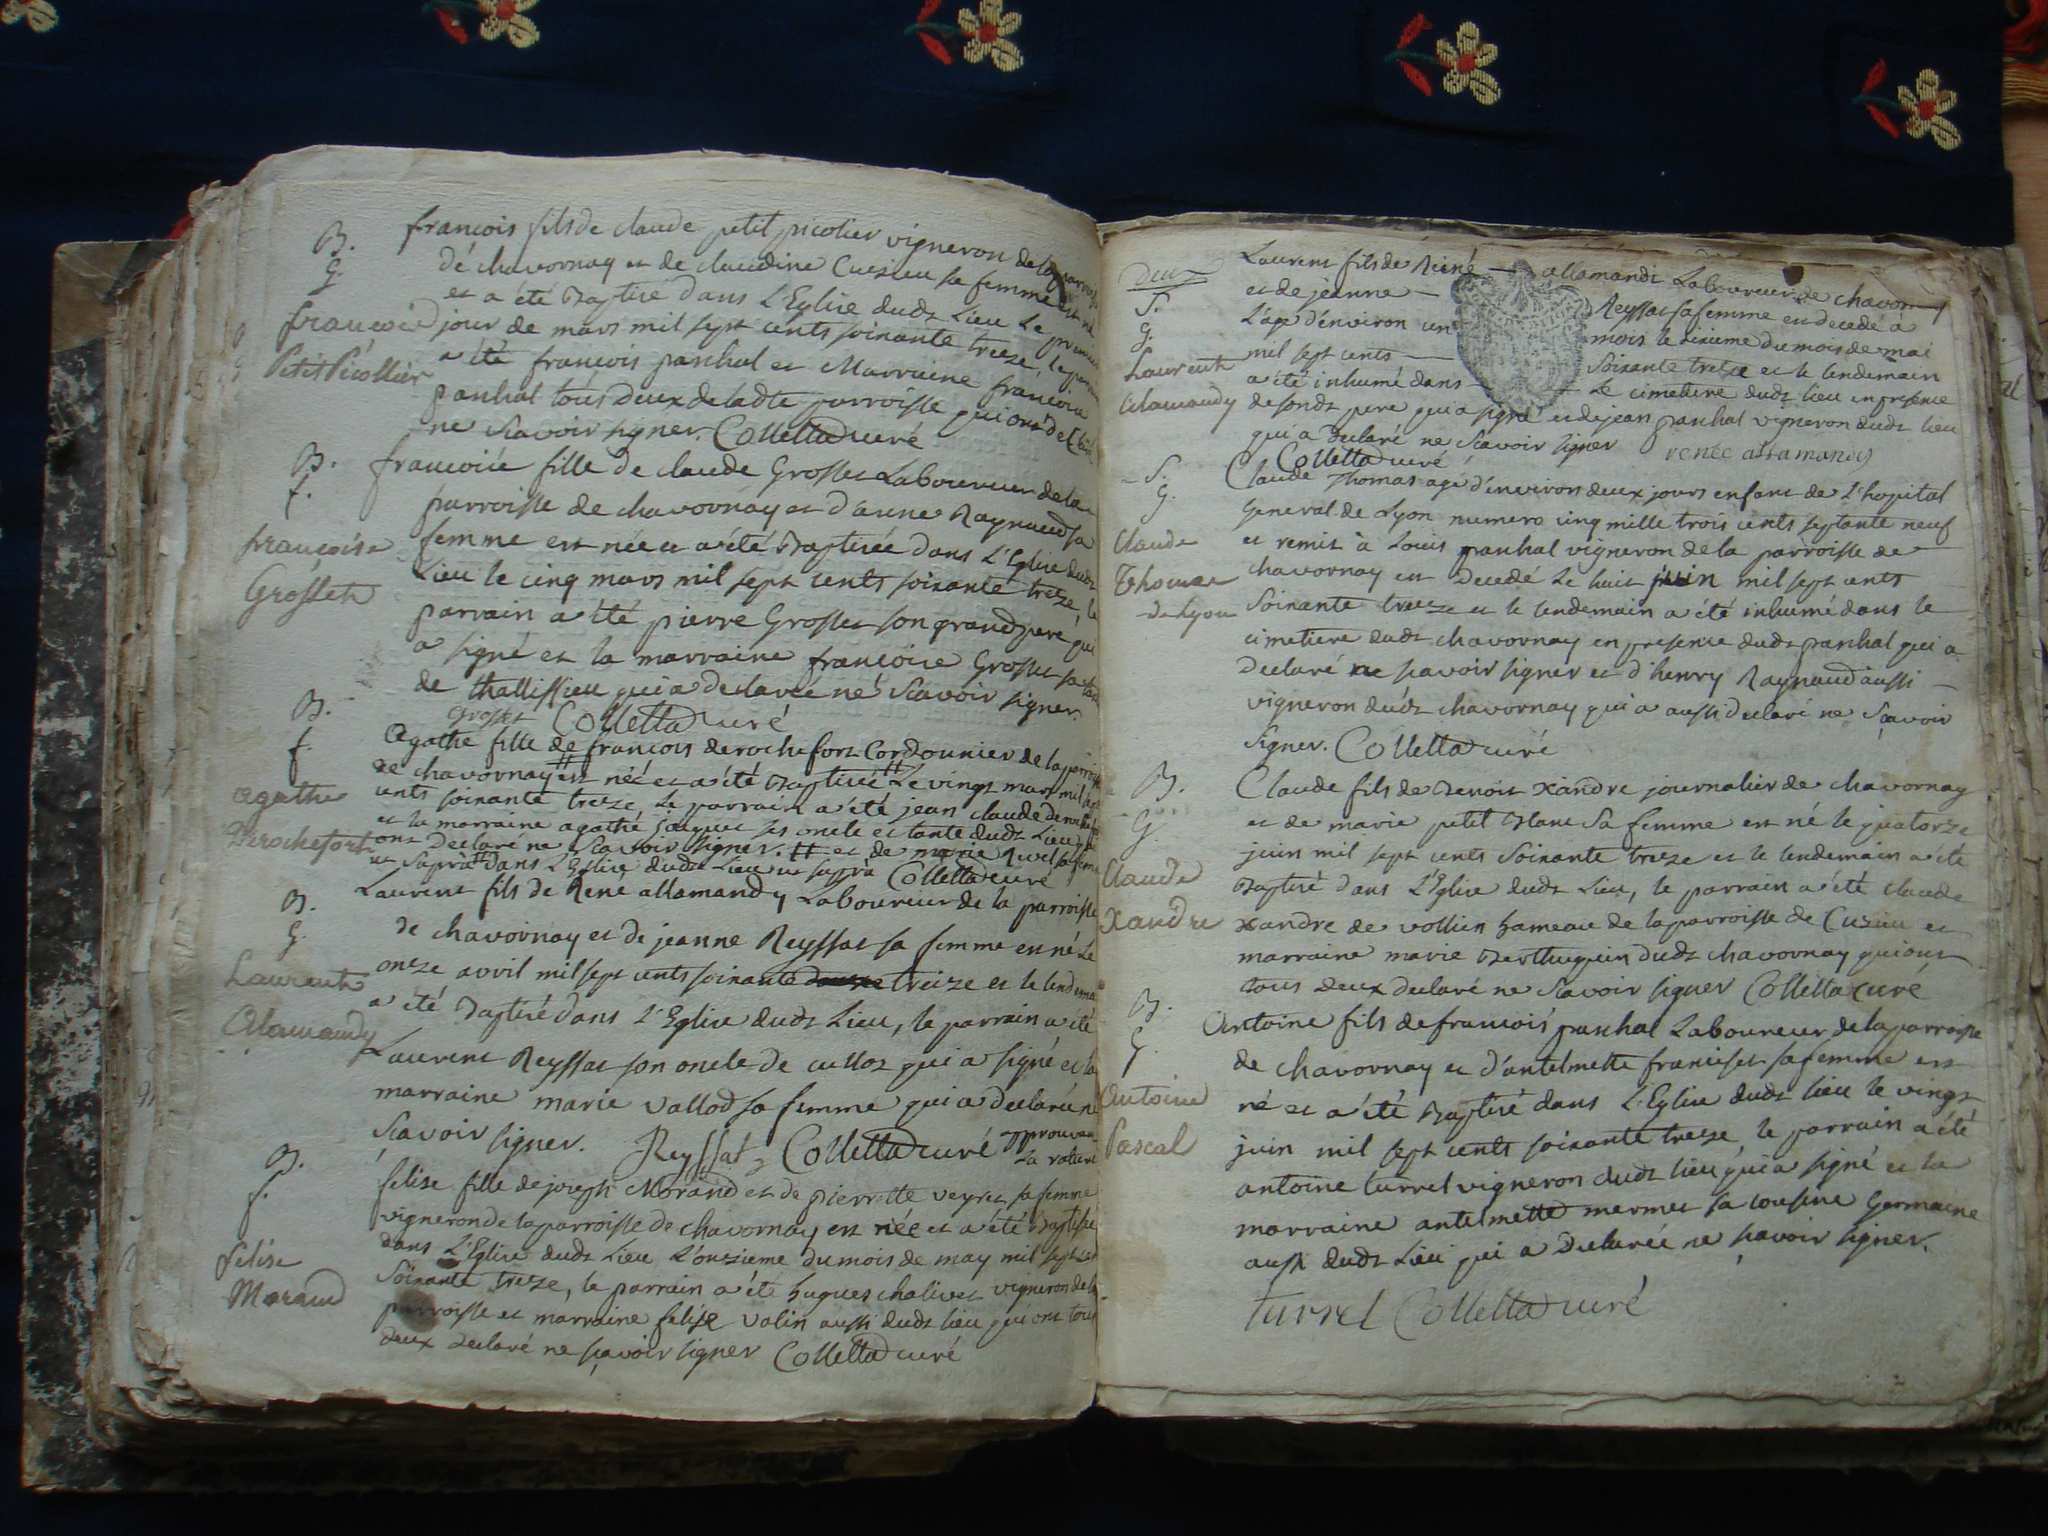 B.
G.
françois
Petit Picollier
françois fils de claude petit picolier vigneron de la parroisse
de chavornay et de claudine Cusieu sa femme est né
et a été Baptisé dans L'Eglise dudt Lieu Le premier
jour de mars mil sept cents soixante treze, le parrain
a été françois paschal et Marraine françoise
paschal tous Deux de ladte parroisse qui ont declaré
ne scavoir signer. Colletta curé
B.
f.
françoise
Grosset
francoise fille de claude Grosset Laboureur de la
parroisse de chavornay et d'anne Raynaud sa
femme est née et a été Baptisée dans L'Eglise dudt
Lieu le cinq mars mil sept cents soixante treze, le
parrain a été pierre Grosset son grand pere qui
a signé et la marraine françoise Grosset sa tante
de thallissieu qui a declarée ne scavoir signer.
Grosset Colletta curé
B.
f.
agathe
Derochefort
Agathe fille de françois derochefort Cordonnier de la parroisse
de chavornay # est née et a été Baptisée # Le vingt mars mil sept
cents soixante treze, Le parrain a été jean claude
et la marraine agathe ses oncle et tante dudt Lieu qui
ont Declaré ne scavoir signer. # et de marie sa femme
ut supra # dans L'Eglise dudt Lieu ut supra Colletta curé
B.
G.
Laurent
Alamandy
Laurent fils de René allamandy Laboureur de la parroisse
de chavornay et de jeanne Reyssat sa femme est né Le
onze avril mil sept cents soixante douze treize et le lendemain
a été Baptisé dans L'Eglise dudt Lieu, le parrain a été
Laurent Reyssat son oncle de culloz qui a signé et la
marraine marie vallod sa femme qui a declarée ne
scavoir signer. Reyssat Colletta curé approuvant
La rature
B.
f.
felise
Morand
felise fille de joseph Morand et de pierrette veyret sa femme
vigneron de la parroisse de chavornay est née et a été Baptisée
dans L'Eglise dudt Lieu L'onzieme du mois de may mil sept cent
soixante treze, le parrain a été hugues chalivet vigneron de la
parroisse et marraine felise valin aussi dudt lieu qui ont tous
deux declaré ne sçavoir signer Colletta curé
Deux
S.
G.
Laurent
Alamandy
Laurent fils de René allamandi Laboureur de chavornay
et de jeanne Reyssat sa femme est decedé à
L'âge d'environ un mois le dixieme du mois de mai
mil sept cents soixante treize et le lendemain
a été inhumé dans le cimetiere dudt lieu en presence
de sondt pere qui a signé et de jean paschal vigneron dudt lieu
qui a declaré ne scavoir signer renée allamandy
Colletta curé
S.
G.
Claude
Thomas
de Lyon
Claude Thomas agé d'environ deux jours enfant de L'hopital
General de Lyon numero cinq mille trois cents septante neuf
et remis à Louis paschal vigneron de la parroisse de
chavornay est decedé Le huit juin mil sept cents
soixante treze et le lendemain a été inhumé dans le
cimetiere dudt chavornay en presence dudt paschal qui a
declaré ne scavoir signer et d'henry Raynaud aussi
vigneron dudt chavornay qui a aussi declaré ne sçavoir
signer. Colletta curé
B.
G.
Claude
Xandre
Claude fils de Benoit Xandre journalier de chavornay
et de marie petit Blanc sa femme est né le quatorze
juin mil sept cents soixante treze et le lendemain a été
Baptisé dans L'Eglise dudt Lieu, le parrain a été claude
Xandre de vollien hameau de la parroisse de Cuzieu et
marraine marie Berthuquin dudt chavornay qui ont
tous deux declaré ne scavoir signer Colletta curé
B.
G.
Antoine
Pascal
Antoine fils de francois paschal Laboureur de la parroisse
de chavornay et d'antelmette sa femme est
né et a été Baptisé dans L'Eglise dudt lieu le vingt
juin mil sept cents soixante treze, le parrain a été
antoine turrel vigneron dudt lieu qui a signé et la
marraine antelmette mermet sa cousine Germaine
aussi dudt Lieu qui a declarée ne sçavoir signer.
turrel Colletta curé